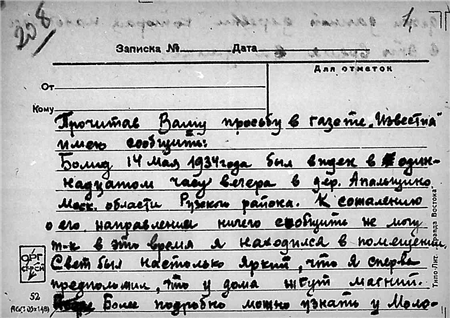 208
1.
Записка № Дата
Для отметок
От
Кому
Прочитав Вашу просьбу в газете „Известия"
имею сообщить:
Болид 14 мая 1934 года был виден в один-
надцатом часу вечера в дер. Апальщино
Моск. области Рузского района. К сожалению
о его направления ничего сообщить не могу
т-к в это время я находился в помещении.
Свет был настолько яркий, что я сперва
предположил, что у дома жгут магний.
Более подробно можно узнать у Моло-
52
Типо-Лит. „Правда Востока"